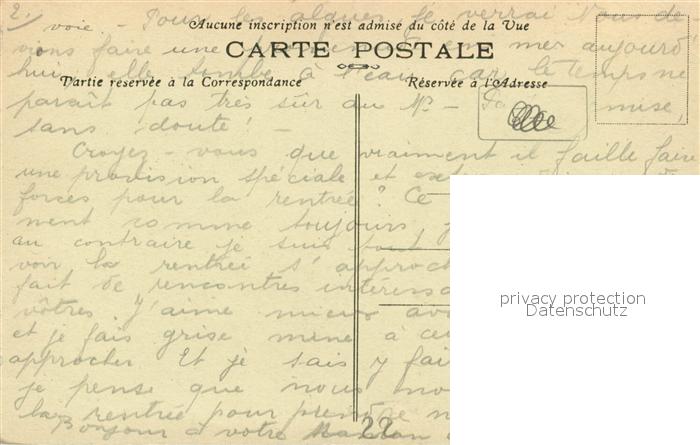 2.
voie - Pour les algues je verrai Nous de
Aucune inscription n'est admise du côté de la Vue
vions faire une en mer aujourd'
CARTE POSTALE
hui elle tombe à l'eau car le temps ne
Partie reservée à la Correspondance
Réservée à l'Adresse
paraît pas très sûr au - mise,
sans doute! -
Croyez-vous que vraiment il faille faire
une provision spéciale et
forces pour la rentrée? Ce
ment comme toujours, j
au contraire je suis tout
voir la rentrée s'approch
fait de rencontres intéressa
vôtres. J'aime mieux avo
et je fais grise mine à ceu
approcher. Et je sais y fai
je pense que nous no
la rentrée pour prendre n
Bonjour à votre Maman
22
privacy protection
Datenschutz